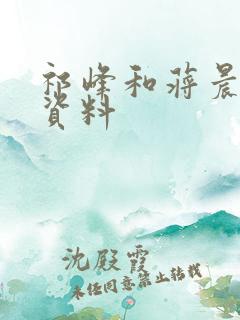 祁峰和蒋晨
资料
沈殿霞
未经同意禁止转载